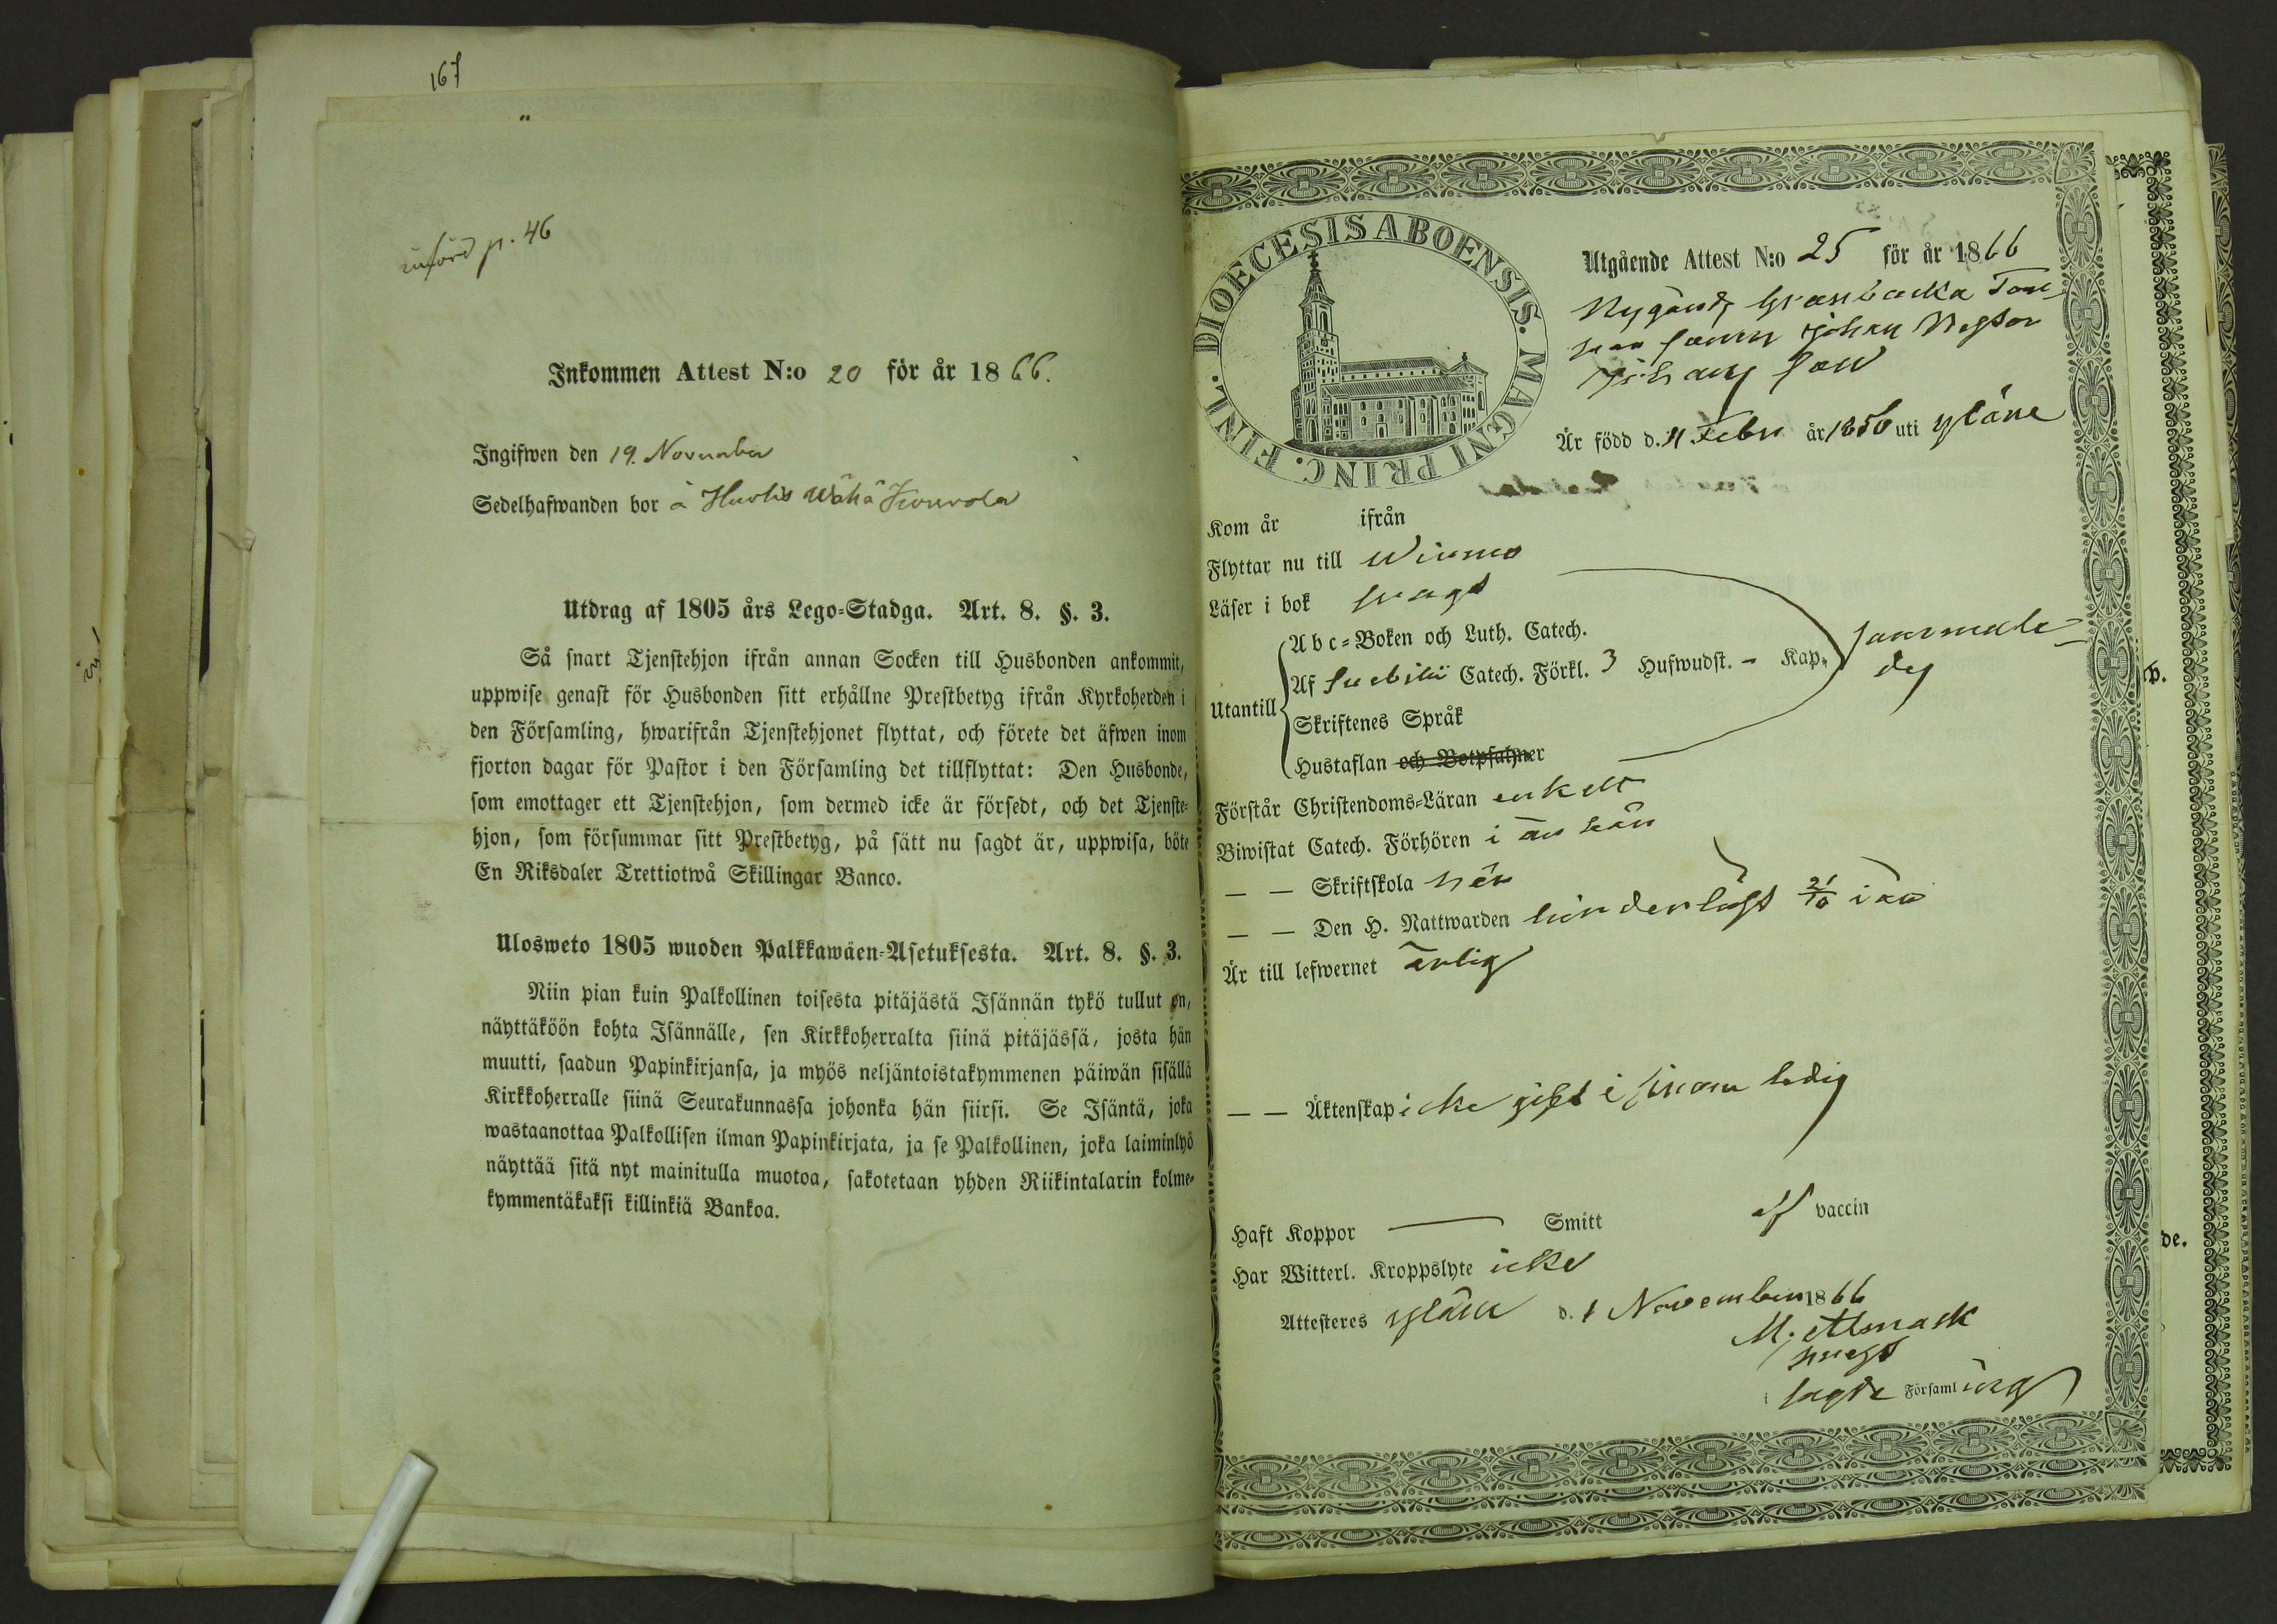 167
införd p. 46
Inkommen Attest N:o 20 för år 1866.
Ingifwen den 19. November
Sedelhafwanden bor å Hurlis Wähä
Utdrag af 1805 års Lego-Stadga. Art. 8. §. 3.
Så snart Tjenstehjon ifrån annan Socken till Husbonden ankommit,
uppwise genast för Husbonden sitt erhållne Prestbetyg ifrån Kyrkoherden i
den Församling, hwarifrån Tjenstehjonet flyttat, och förete det äfwen inom
fjorton dagar för Pastor i den Församling det tillflyttat: Den Husbonde,
som emottager ett Tjenstehjon, som dermed icke är försedt, och det Tjenste-
hjon, som försummar sitt Prestbetyg, på sätt nu sagdt är, uppwisa, böte
En Riksdaler Trettiotwå Skillingar Banco.
Ulosweto 1805 wuoden Palkkawäen-Asetuksesta. Art. 8. §. 3.
Niin pian kuin Palkollinen toisesta pitäjästä Isännän tykö tullut on,
näyttäköön kohta Isännälle, sen Kirkkoherralta siinä pitäjässä, josta hän
muutti, saadun Papinkirjansa, ja myös neljäntoistakymmenen päiwän sisällä
Kirkkoherralle siinä Seurakunnassa johonka hän siirsi. Se Isäntä, joka
wastaanottaa Palkollisen ilman Papinkirjata, ja se Palkollinen, joka laiminlyö
näyttää sitä nyt mainitulla muotoa, sakotetaan yhden Riikintalarin kolme-
kymmentäkaksi killinkiä Bankoa.
DIOECESIS ABOENSIS. MAGNI PRINC. FINL.
Utgående Attest N:o 25 för år 1866
Nygårds Granbacka
Johan Nestor
Johans son
Är född d. 11 Febr år 1850 uti Yläne
Kom år ifrån
Flyttar nu till Wirmo
Läser i bok svagt
Abc-Boken och Luth. Catech.
Utantill Af Svebilii Catech. Förkl. 3 Hufwudst. - Kap.
sammale-
des
Skriftenes Språk
Hustaflan och Botpsalmer
Förstår Christendoms-Läran enkelt
Biwistat Catech. Förhören i
— — Skriftskola
— — Den H. Nattwarden hinderlöst 21/10 i år
Är till lefwernet ärlig
— — Äktenskap icke gift i ledig
Haft Koppor — Smitt af vaccin
Har Witterl. Kroppslyte icke
Attesteres Yläne d. 1 November 1866
M. Almark
sagde Församling
p.
de.